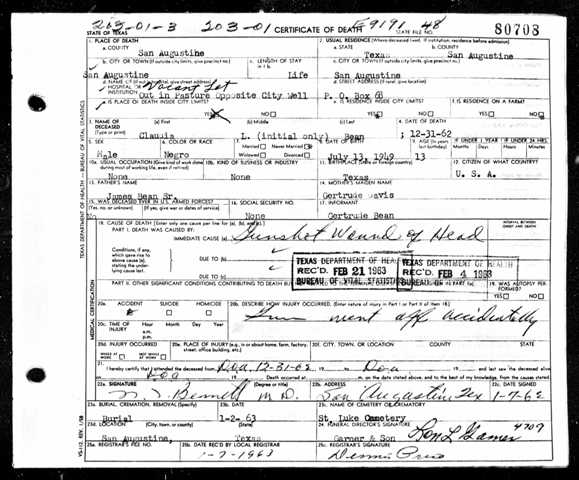 203-01-3 203-01 E9191 48 80703
STATE OF TEXAS CERTIFICATE OF DEATH STATE FILE NO.
1. PLACE OF DEATH 2. USUAL RESIDENCE (Where deceased lived. If institution: residence before admission)
a. COUNTY a. STATE b. COUNTY
San Augustine Texas San Augustine
b. CITY OR TOWN (If outside city limits, give precinct no.) c. LENGTH OF STAY c. CITY OR TOWN (If outside city limits, give precinct no.)
San Augustine Life San Augustine
d. NAME OF (If not in hospital, give street address) d. STREET ADDRESS (If rural, give location)
HOSPITAL OR INSTITUTION Vacant Lot
Out in Pasture Opposite City Well P. O. Box 68
e. IS PLACE OF DEATH INSIDE CITY LIMITS? e. IS RESIDENCE INSIDE CITY LIMITS? f. IS RESIDENCE ON A FARM?
YES NO YES NO YES NO
3. NAME OF DECEASED (Type or print) (a) First (b) Middle (c) Last 4. DATE OF DEATH
Claudis L. (initial only) Bean 12-31-62
5. SEX 6. COLOR OR RACE 7. Married Never Married Widowed Divorced 8. DATE OF BIRTH 9. AGE (In years last birthday) IF UNDER 1 YEAR IF UNDER 24 HRS.
Male Negro July 13, 1949 13
10a. USUAL OCCUPATION (Give kind of work done during most of working life, even if retired) 10b. KIND OF BUSINESS OR INDUSTRY 11. BIRTHPLACE (State or foreign country) 12. CITIZEN OF WHAT COUNTRY?
None None Texas U. S. A.
13. FATHER'S NAME 14. MOTHER'S MAIDEN NAME
James Bean Sr. Gertrude Davis
15. WAS DECEASED EVER IN U.S. ARMED FORCES? 16. SOCIAL SECURITY NO. 17. INFORMANT
No None Gertrude Bean
18. CAUSE OF DEATH (Enter only one cause per line for (a), (b), and (c).) INTERVAL BETWEEN ONSET AND DEATH
PART I. DEATH WAS CAUSED BY:
IMMEDIATE CAUSE (a) Gunshot Wound of Head
Conditions, if any, which gave rise to above cause (a) stating the underlying cause last.
DUE TO (b)
DUE TO (c)
TEXAS DEPARTMENT OF HEALTH
REC'D FEB 21 1963
BUREAU OF VITAL STATISTICS
TEXAS DEPARTMENT OF HEALTH
REC'D. FEB 4 1963
BUREAU OF
PART II. OTHER SIGNIFICANT CONDITIONS CONTRIBUTING TO DEATH 19. WAS AUTOPSY PERFORMED?
YES NO
20a. ACCIDENT SUICIDE HOMICIDE 20b. DESCRIBE HOW INJURY OCCURRED. (Enter nature of injury in Part I or Part II of item 18.)
Gun went off accidentally
20c. TIME OF INJURY Hour a.m. p.m. Month Day Year
20d. INJURY OCCURRED 20e. PLACE OF INJURY (e.g., in or about home, farm, factory, street, office building, etc.) 20f. CITY, TOWN, OR LOCATION COUNTY STATE
WHILE AT WORK NOT WHILE AT WORK
21. I hereby certify that I attended the deceased from DOA 12-31-62 to Doa and last saw the deceased alive
DOA Death occurred at m. on the date stated above, and to the best of my knowledge, from the causes stated.
22a. SIGNATURE (Degree or title) 22b. ADDRESS 22c. DATE SIGNED
Bennett M D. San Augustine Tex 1-7-62
23a. BURIAL, CREMATION, REMOVAL (Specify) 23b. DATE 23c. NAME OF CEMETERY OR CREMATORY
Burial 1-2-63 St. Luke Cemetery
23d. LOCATION (City, town, or county) (State) 24. FUNERAL DIRECTOR'S SIGNATURE 4709
San Augustine, Texas Garner & Son
25a. REGISTRAR'S FILE NO. 25b. DATE REC'D BY LOCAL REGISTRAR 25c. REGISTRAR'S SIGNATURE
1-7-1963
TEXAS DEPARTMENT OF HEALTH — BUREAU OF VITAL STATISTICS
MEDICAL CERTIFICATION
VS-112, REV. 1/58